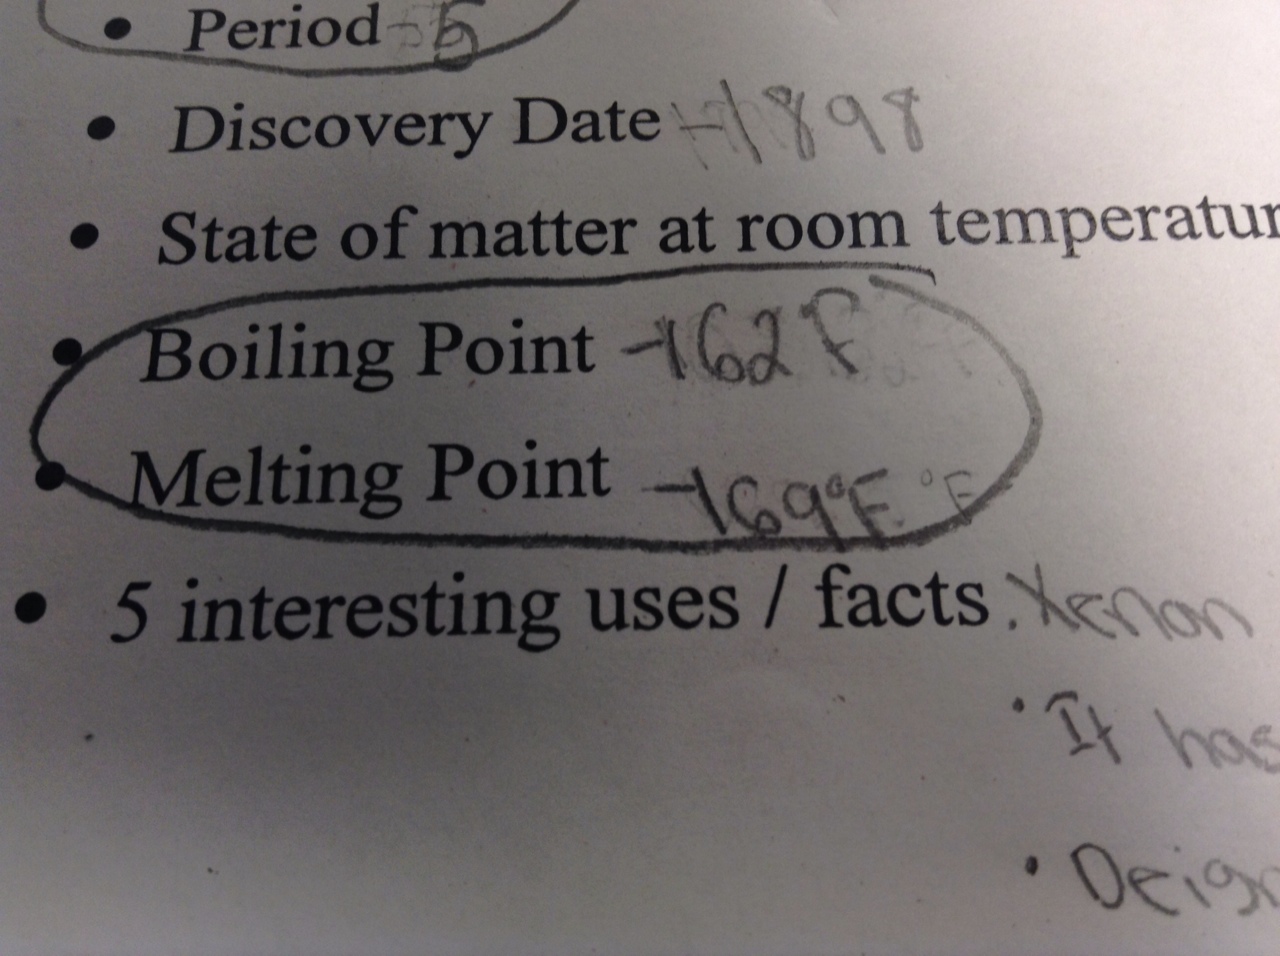 • Period - 5
• Discovery Date - 1898
• State of matter at room temperatur
• Boiling Point -162 F
• Melting Point -169°F °F
• 5 interesting uses / facts . Xenon
• It has
• Deign